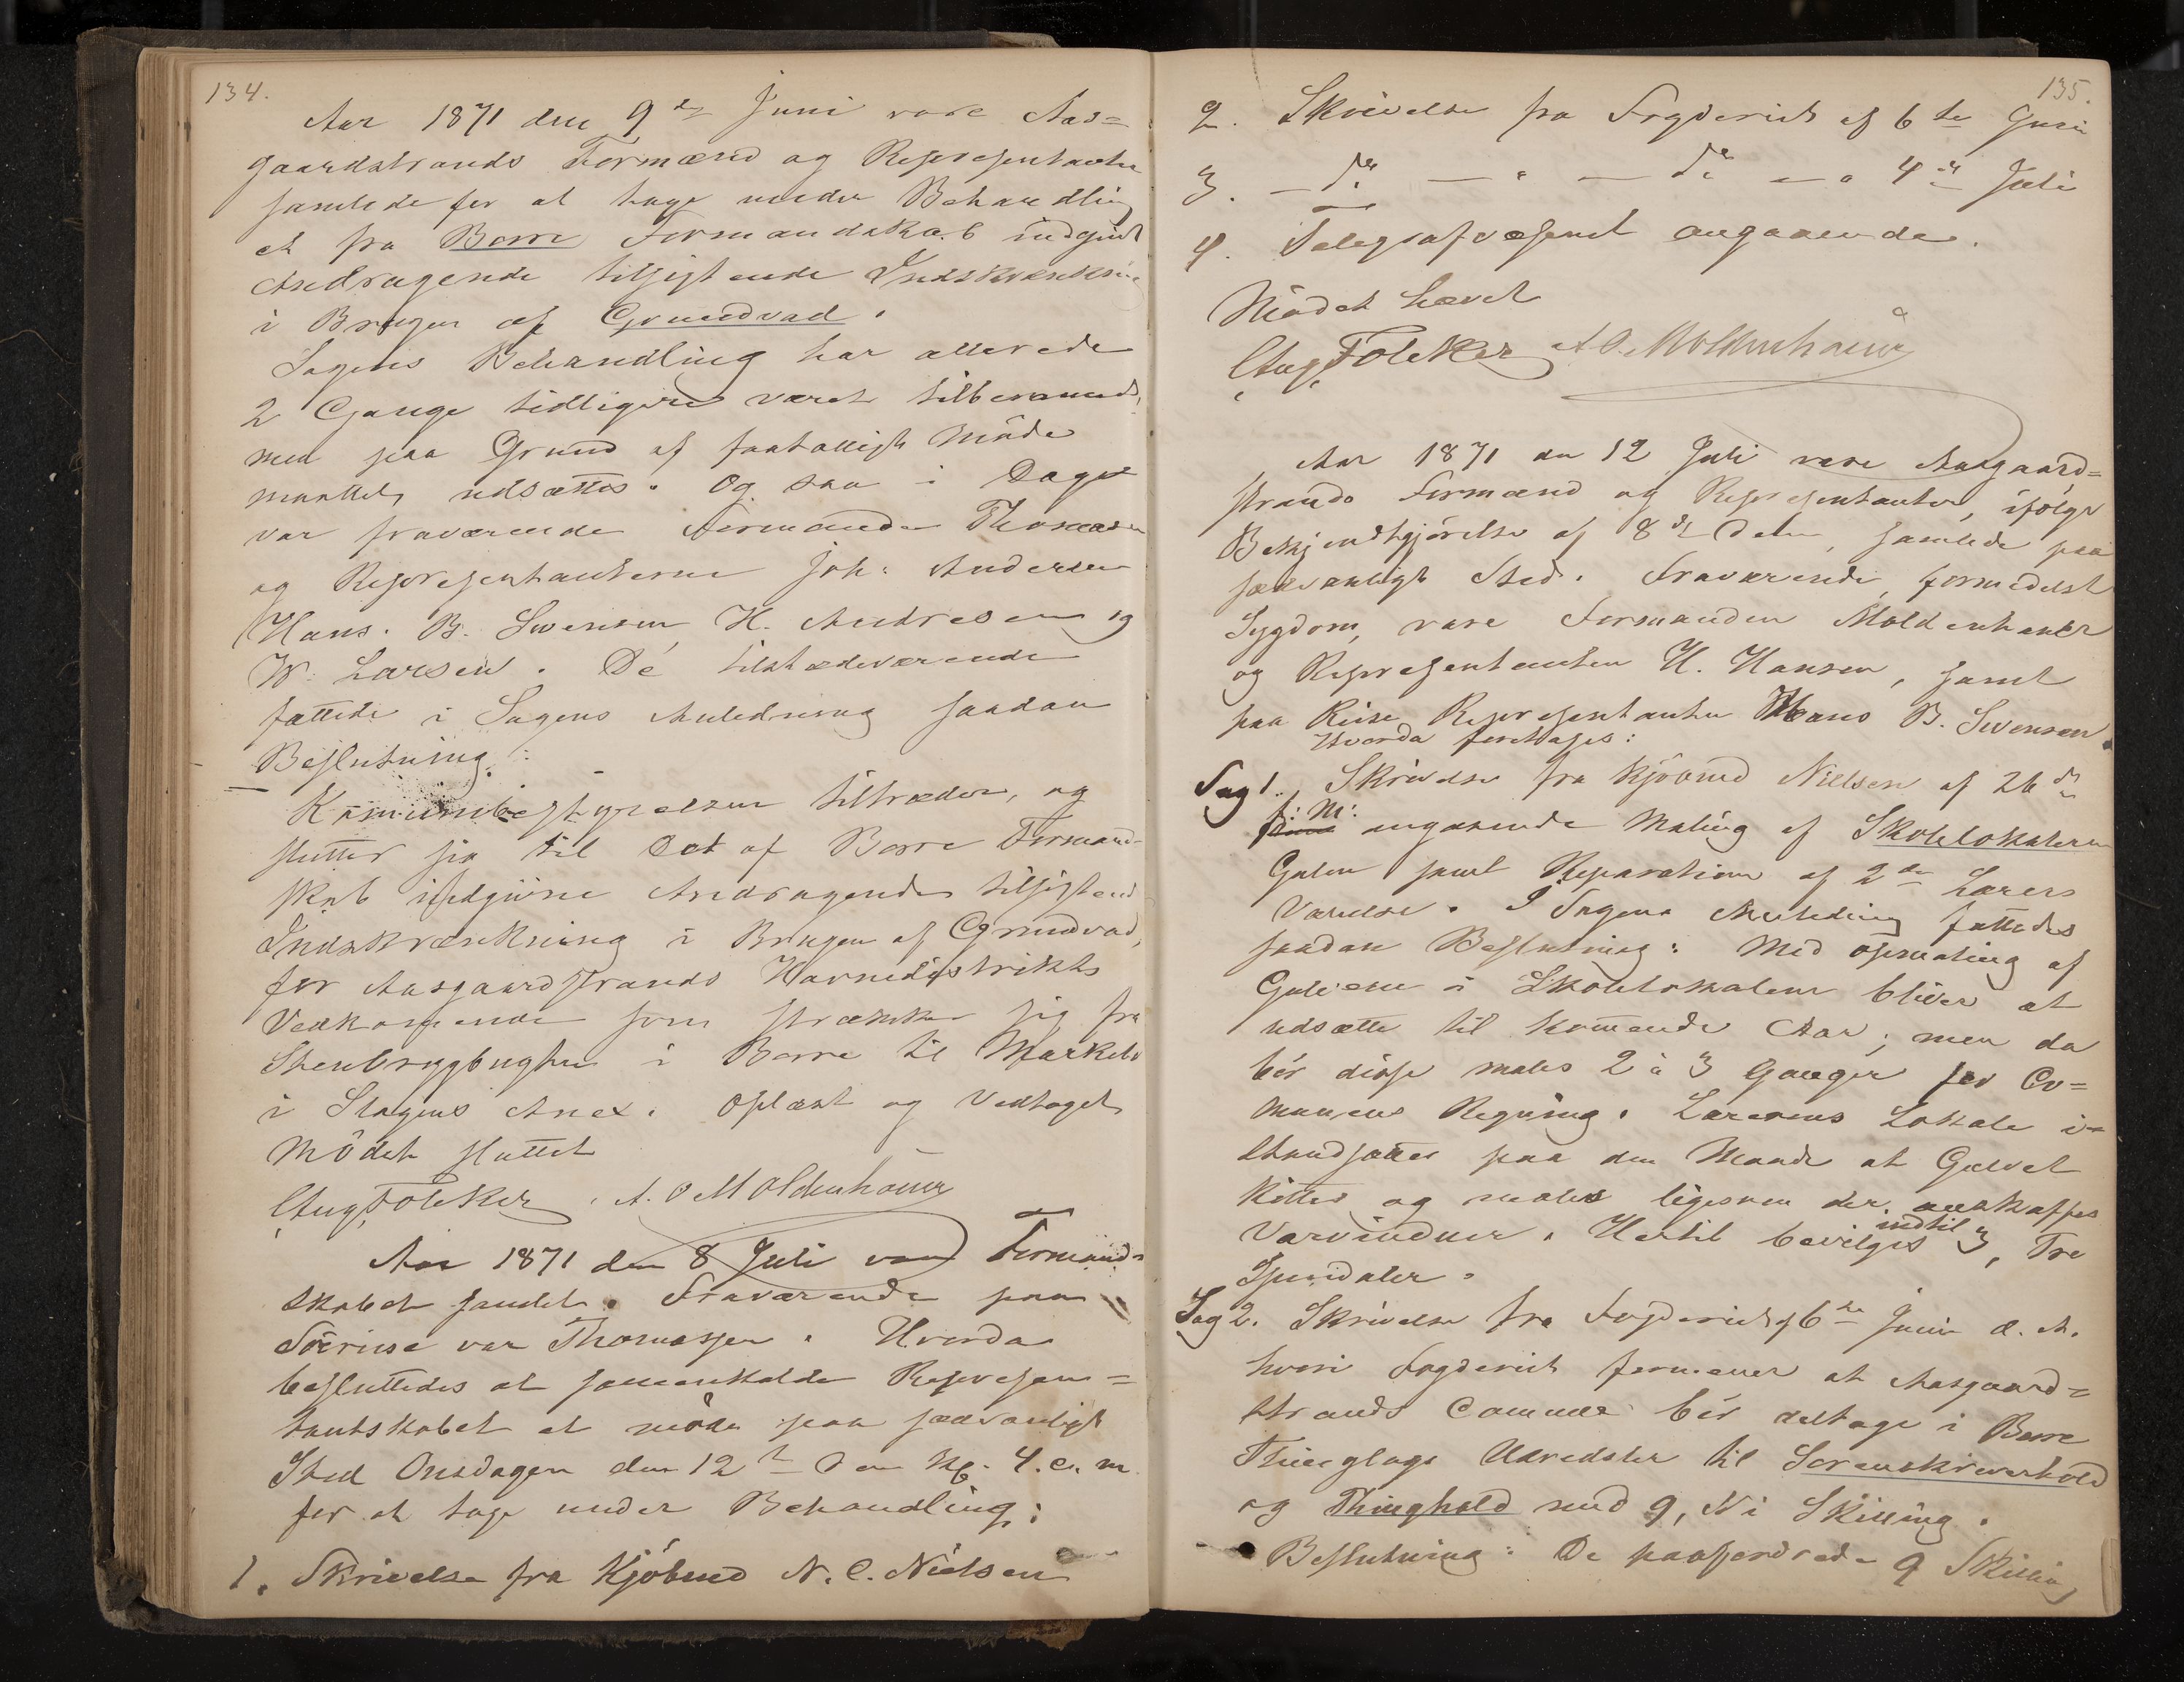 134.
Aar 1871 den 9de Juni vare Aas=
gaardstrands Formænd og Representanter
samlede for at tage under Behandling
et fra Borre Formandskab indgivet
Andragende tilsigtende Indskrænkning
i Brugen af Grundvad.
Sagens Behandling har allerede
2 Gange tidligere været tilberammet,
men paa Grund af faatalligt Møde
maattet udsættes. Og saa i Dag
var fraværende Formanden Thomasen
og Representanterne Joh: Andersen
Hans. B. Svensen H. Andresen og
W. Larsen. De tilstedeværende
fattede i Sagens Anledning saadan
Beslutning:
Kommunebestyrelsen tiltræder, og
slutter sig til Det af Borre Formand-
skab indgivne Andragende tilsigtend
Indskrænkning i Brugen af Grundvad,
for Aasgaardstrands Havnedistrikts
Vedkommende som strækker sig fra
Stenbrygbugten i Borre til
i Slagens Anex. Oplæst og Vedtaget
Mödet sluttet
Aug. Fölcker. A. O Moldenhauer
Aar 1871 den 8 Juli var Formand=
skabet samlet. Fraværende paa
Söreise var Thomassen. Hvorda
besluttedes at sammenkalde Represen=
tantskabet at möde paa sædvanligt
Sted Onsdagen den 12te Dns Kl. 4. e. m
for at tage under Behandling:
1. Skrivelse fra Kjöbmd N. C. Nielsen
135.
2. Skrivelse fra Fogderiet af 6te Juni
3. — do — " — do — " 4de Juli
4. Telegrafvæsenet angaaende.
Mödet hævet
Aug. Fölcker A O. Moldenhauer
Aar 1871 den 12 Juli vare Aasgaard=
strands Formænd og Representanter, ifölge
Bekjendtgjörelse af 8de Dns, samlede paa
sædvanligt Sted. Fraværende, formedelst
Sygdom, vare Formanden Moldenhauer
og Representanten H. Hansen, samt
paa Reise Representanten Hans B. Svensen.
Hvorda foretoges:
Sag 1. Skrivelse fra Kjöbmd Nielsen af 26de
f: M: angaaende Maling af Skolelokalern
Gulve samt Reparation af 2den Lærers
Værelse. I Sagens Anledning fattedes
saadan Beslutning: Med opmaling af
Gulvene i Skolelokalerne bliver at
udsætte til kommende Aar; men da
bör disse males 2 à 3 Ganger for Co=
munens Regning. Lærerens Lokale i=
standsættes paa den Maade at Gulvet
kittes og males ligesom der anskaffes
Varvinduer. Hertil bevilges indtil 3, Tre
Speidaler.
Sag 2. Skrivelse fra Fogderiet af 6te Juni d. A.
hvori Fogderiet formener at Aasgaard=
strands Commune bör deltage i Borre
Thinglags Udredsler til Sorenskriverhold
og Thinghold med 9, Ni Skilling.
Beslutning: De paafordrede 9 Skilling